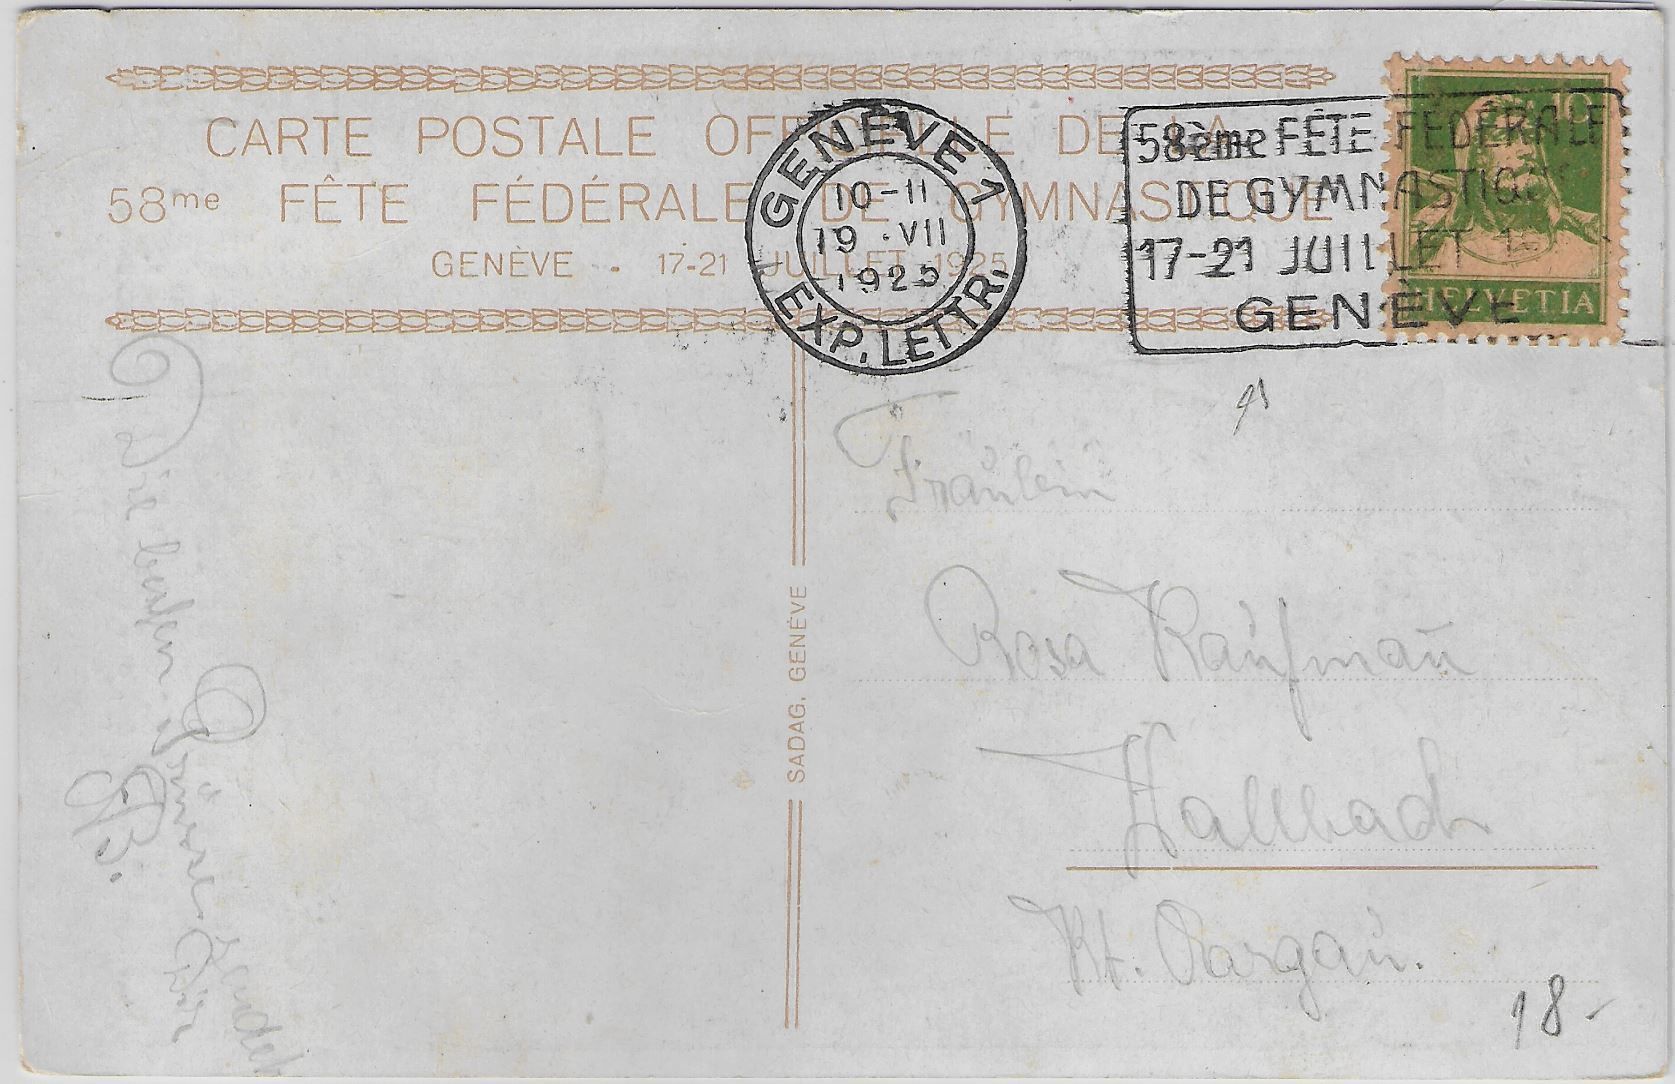 CARTE POSTALE OFFICIELLE DE LA
58me FÊTE FÉDÉRALE DE GYMNASTIQUE
GENÈVE . 17-21 JUILLET 1925
GENÈVE 1
10-11
19 . VII
1925
EXP. LETTR.
58ème FÊTE FÉDÉRALE
DE GYMNASTIQUE
17-21 JUILLET
GENÈVE
10
HELVETIA
Die besten
Grüsse sendet
Dir
B.
SADAG, GENÈVE
Fräulein
Rosa Kaufmann
Hallbach
Kt. Aargau.
18.-